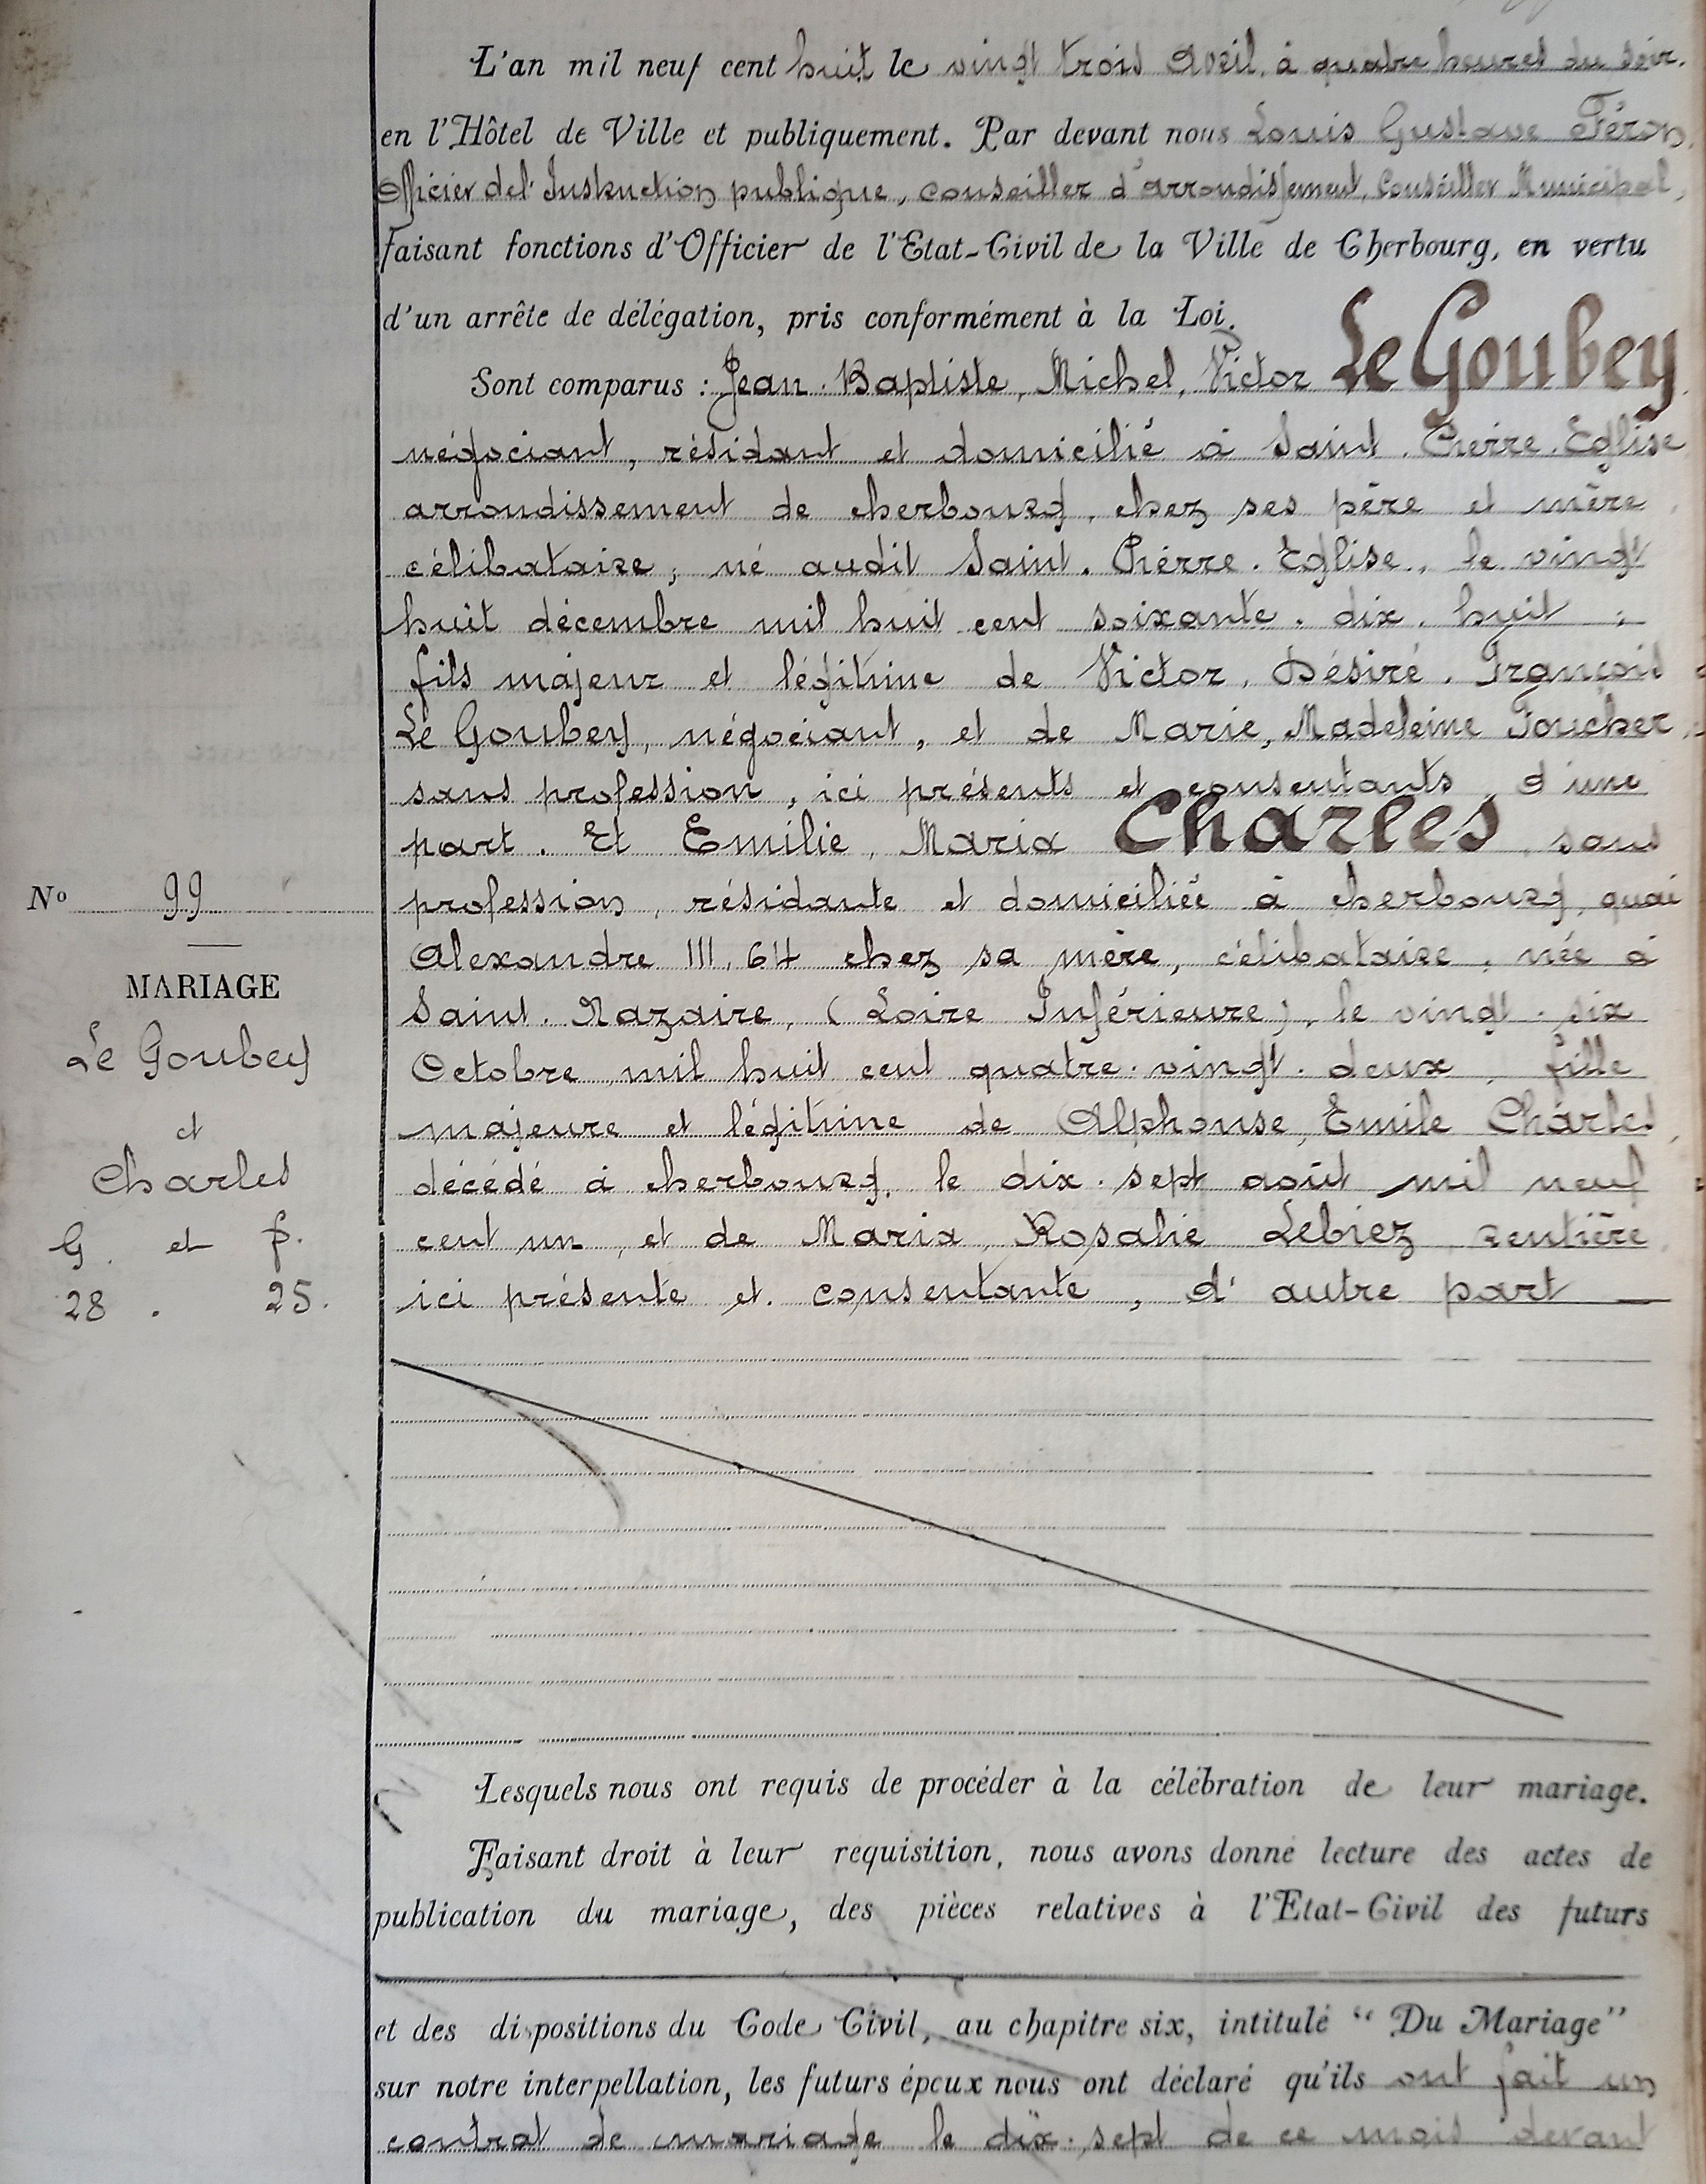 L'an mil neuf cent huit le vingt trois Avril, à quatre heures du soir.
en l'Hôtel de Ville et publiquement. Par devant nous Louis Gustave Féron,
Officier de l'Instruction publique, conseiller d'arrondissement, Conseiller Municipal,
faisant fonctions d'Officier de l'Etat-Civil de la Ville de Cherbourg, en vertu
d'un arrête de délégation, pris conformément à la Loi.
Sont comparus : Jean-Baptiste, Michel, Victor Le Goubey
négociant, résidant et domicilié à Saint-Pierre-Eglise
arrondissement de cherbourg, chez ses père et mère,
célibataire, né audit Saint-Pierre-Eglise, le vingt
huit décembre mil huit cent soixante-dix-huit ;
fils majeur et légitime de Victor, Désiré, François
Le Goubey, négociant, et de Marie, Madeleine Foucher,
sans profession, ici présents et consentants, d'une
part. Et Emilie, Maria Charles, sans
profession, résidante et domiciliée à cherbourg, quai
Alexandre III, 64 chez sa mère, célibataire, née à
Saint-Nazaire, (Loire Inférieure), le vingt-six
Octobre mil huit cent quatre-vingt-deux, fille
majeure et légitime de Alphonse, Emile Charles,
décédé à cherbourg, le dix-sept août mil neuf
cent un, et de Maria, Rosalie Lebiez, rentière,
ici présente et consentante, d'autre part —
No 99
MARIAGE
Le Goubey
et
Charles
G. et f.
28 . 25.
Lesquels nous ont requis de procéder à la célébration de leur mariage.
Faisant droit à leur requisition, nous avons donné lecture des actes de
publication du mariage, des pièces relatives à l'Etat-Civil des futurs
et des dispositions du Code Civil, au chapitre six, intitulé “Du Mariage”
sur notre interpellation, les futurs époux nous ont déclaré qu'ils ont fait un
contrat de mariage le dix-sept de ce mois devant